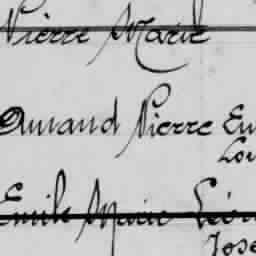 Pierre Marie
Amand Pierre Em
Lou
Emile Marie Léon
Jose